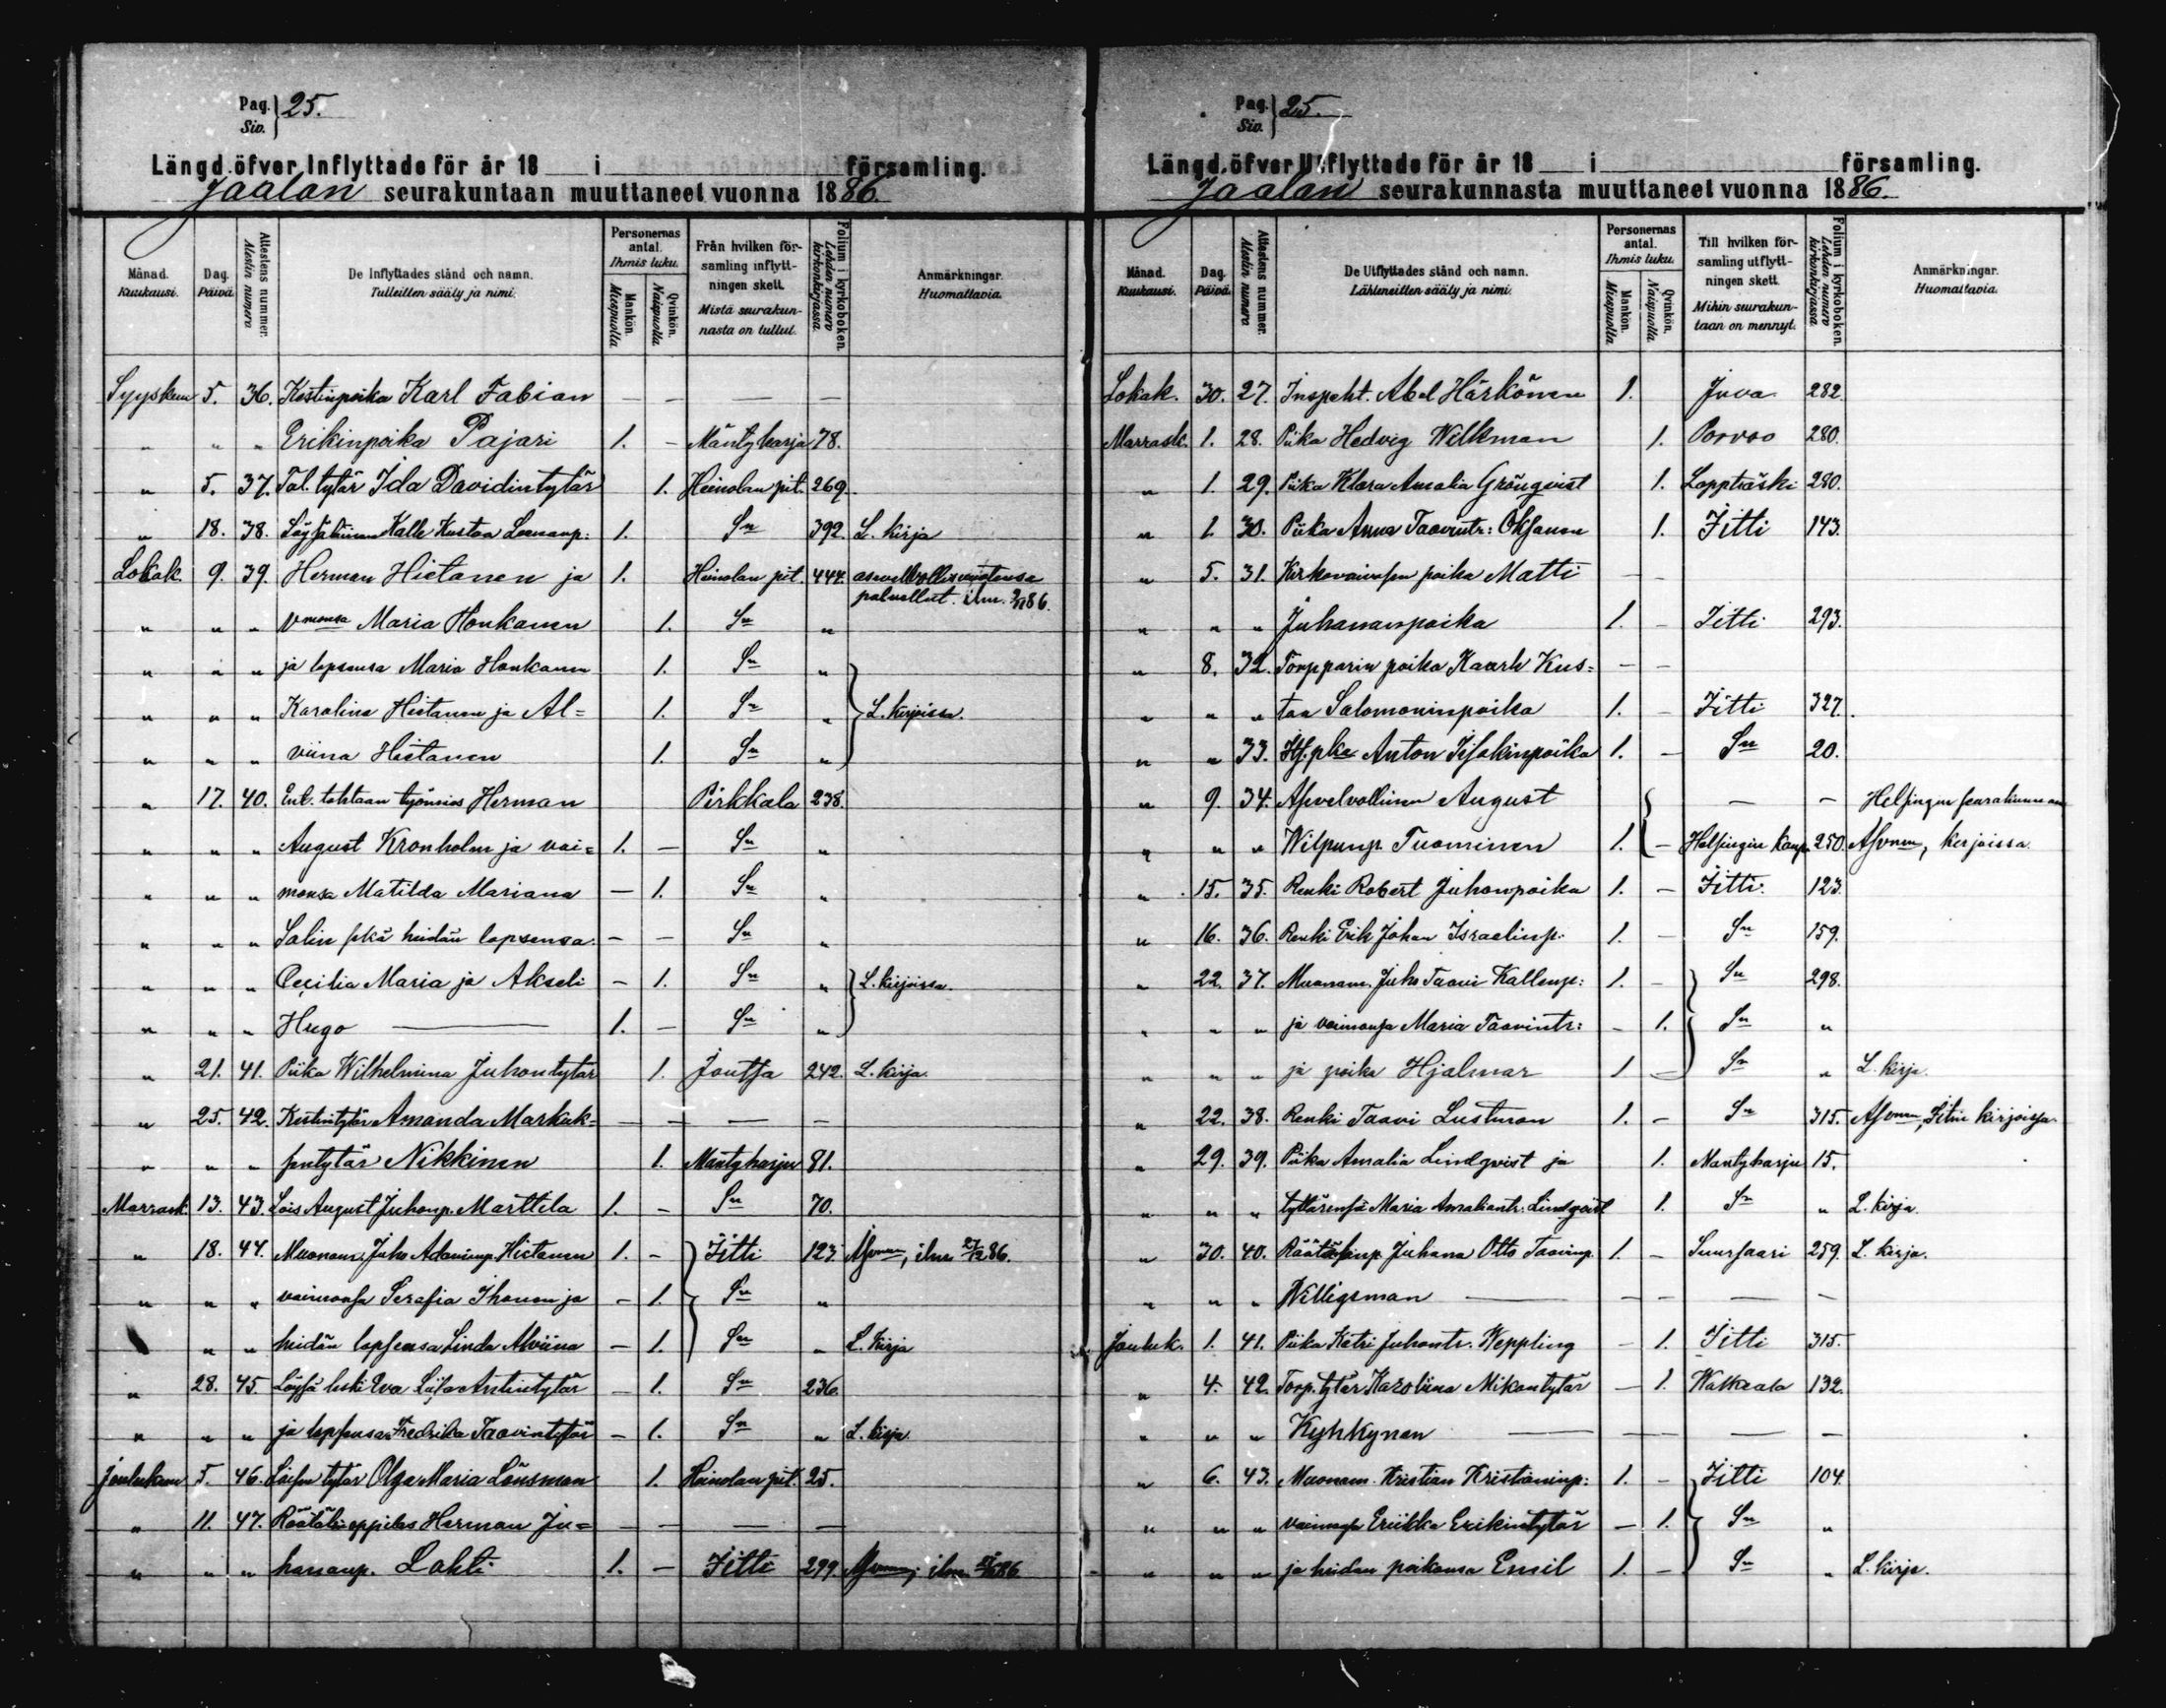 Pag. Siv. } 25.
Längd öfver Inflyttade för år 18 i församling.
Jaalan seurakuntaan muuttaneet vuonna 1886.
Månad. Kuukausi. | Dag. Päivä | Attestens nummer. Alestin numero | De Inflyttades stånd och namn. Tulleitten sääty ja nimi. | Personernas antal. Ihmis luku. Mankön. Miespuolia | Qvinkön. Naispuolia | Från hvilken församling inflyttningen skett. Mistä seurakunnasta on tullut. | Folium i kyrkoboken. Lehden numero kirkonkirjassa | Anmärkningar. Huomattavia.
Syyskuu 5. 36. Kestinpoika Karl Fabian — — — —
" " " Erikinpoika Pajari 1. – Mäntyharja 78.
" 5. 37. Tal. tytär Ida Davidintytär 1. Heinolan pit. 269.
" 18. 38. Kalle Kustaa 1. Sn 392. L. kirja
Lokak. 9. 39. Herman Hietanen ja 1. Heinolan pit. 444.
palvellut. ilm. 86.
" " " Vmonsa Maria Honkanen 1. Sn "
" " " ja lapsensa Maria Honkanen 1. Sn "
" " " Karolina Hietanen ja Al= 1. Sn " L. kirjoissa.
" " " viina Hietanen 1. Sn "
" 17. 40. Ent. tehtaan työmies Herman Pirkkala 238.
" " " August Kronholm ja vai= 1. – Sn "
" " " monsa Matilda Mariana – 1. Sn "
" " " Salin sekä heidän lapsensa – – Sn "
" " " Cecilia Maria ja Akseli – 1. Sn " L. kirjoissa.
" " " Hugo — 1. – Sn "
" 21. 41. Piika Wilhelmina Juhontytär 1. Joutsa 242. L. kirja.
" 25. 42. Kestintytär Amanda Markuk= — — — —
" " " sentytär Nikkinen 1. Mäntyharju 81.
Marrask. 13. 43. Lois August Juhonp. Marttila 1. – Sn 70.
" 18. 44. Muonam. Juho Adaminp. Hietanen 1. – Iitti 123. Asvmm, ilm 86.
" " " vaimonsa Serafia Ihanen ja – 1. Sn "
" " heidän lapsensa Linda Alviina – 1. Sn " L. kirja
" 28. 45. Löysä leski Eva Liisa Antintytär – 1. Sn 236.
" " " ja lapsensa Fredrika Taavintytär – 1. Sn " L. kirja.
Joulukuu 5. 46. Loisen tytär Olga Maria Länsman 1. Heinolan pit. 25.
" 11. 47. Räätälin oppilas Herman Ju= — — — —
" " " hananp. Lahti 1. – Iitti 299. ilm. 86
Pag. Siv. } 25.
Längd öfver Utflyttade för år 18 i församling.
Jaalan seurakunnasta muuttaneet vuonna 1886.
Månad. Kuukausi. | Dag. Päivä. | Attestens nummer. Alestin numero | De Utflyttades stånd och namn. Lähteneitten sääty ja nimi. | Personernas antal. Ihmis luku. Mankön. Miespuolia | Qvinkön. Naispuolia | Till hvilken församling utflyttningen skett. Mihin seurakuntaan on mennyt. | Folium i kyrkoboken. Lehden numero kirkonkirjassa | Anmärkningar. Huomattavia.
Lokak. 30. 27. Inspeht. Abel Härkönen 1. Juva 282.
Marrask. 1. 28. Piika Hedvig Wilkman 1. Porvoo 280.
" 1. 29. Piika Klara Amalia Grönqvist 1. Lappträski 280.
" 1. 30. Piika Anna Taavintr: Oksanen 1. Iitti 143.
" 5. 31. Kirkovaivasen poika Matti — —
" " " Juhananpoika 1. – Iitti 293.
" 8. 32. Torpparin poika Kaarle Kus= — —
" " " taa Salomoninpoika 1. – Iitti 327.
" " 33. Anton Isakinpoika 1. – Sn 20.
" 9. 34. Asevelvollinen August — — Helsingin seurakunnan
" " " Wilpunp. Tuominen 1. – Helsingin kaup. 250. Asvmm, kirjoissa.
" 15. 35. Renki Robert Juhonpoika 1. – Iitti. 123.
" 16. 36. Renki Erik Johan Israelinp. 1. – Sn 159.
" 22. 37. Muonam. Juho Taavi Kallenp: 1. – Sn 298.
" " " ja vaimonsa Maria Taavintr: – 1. Sn "
" " " ja poika Hjalmar 1 – Sn " L. kirja.
" 22. 38. Renki Taavi Lustman 1. – Sn 315. Asvmm, Iitin kirjoissa.
" 29. 39. Piika Amalia Lindqvist ja 1. Mäntyharju 15.
" " " tyttärensä Maria Amaliantr: Lindqvist 1. Sn " L. kirja.
" 30. 40. Juhana Otto Taavinp. 1. – Suursaari 259. L. kirja.
" " " Willigsman — — — — —
Jouluk. 1. 41. Piika Katri Juhontr. Weppling – 1. Iitti 315.
" 4. 42. Torp. tytär Karoliina Mikontytär – 1. Walkeala 132.
" " " Kyhkynen — — — — —
" 6. 43. Muonam. Kristian Kristianinp: 1. – Iitti 104.
" " " vaimonsa Eriikka Erikintytär – 1. Sn "
" " " ja heidän poikansa Emil 1. – Sn " L. kirja.